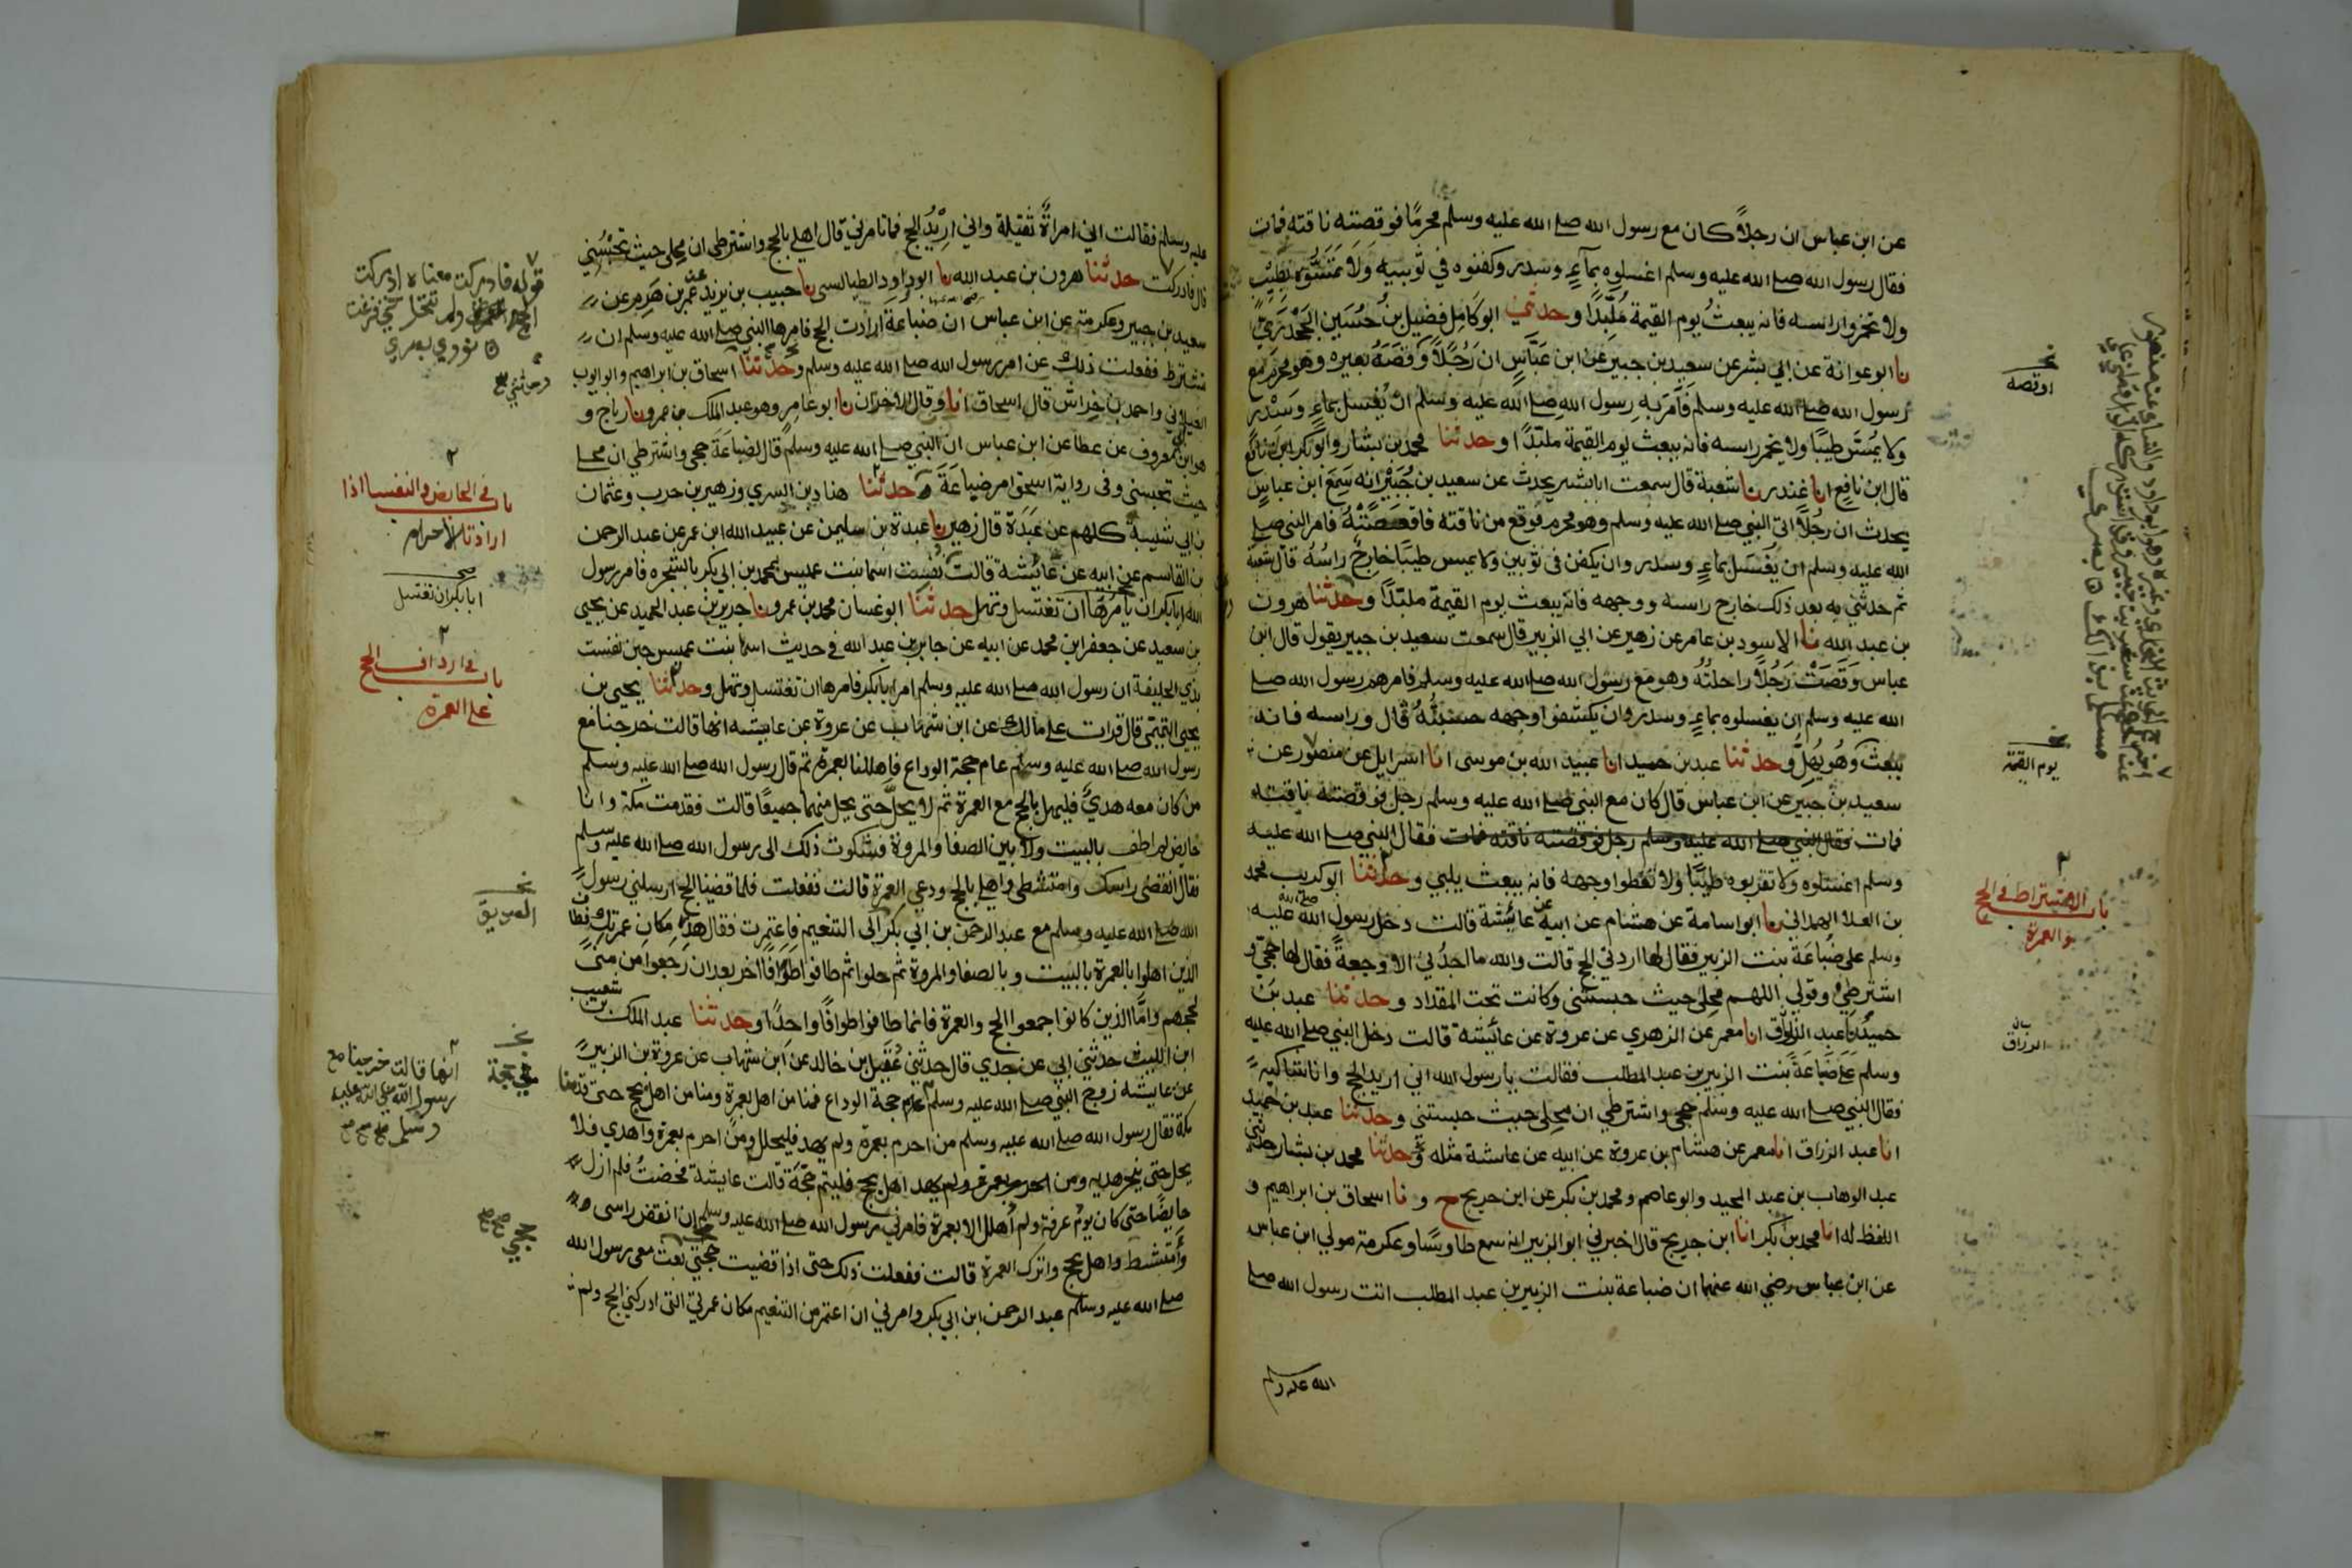 عن ابن عباس ان رجلاً كان مع رسول الله صلے الله عليه وسلم محرمًا فوقصته ناقته فمات
فقال رسول الله صلے الله عليه وسلم اغسلوه بمآءٍ وسدر وكفنوه في ثوبيه ولا تمسّوه بطيب
ولا تخمروا راسه فانه يبعثُ يوم القيمة مُلَبِّدًا وحدثني ابو كامِل فضيل بنُ حُسَين الجَحْدَرِيّ
نا ابو عوانة عن ابي بشر عن سعيد بن جبير عن ابن عبّاسٍ ان رَجُلاً وَقَصَهُ بعيره وهو محرم مع
رسول الله صلے الله عليه وسلم فأمَر به رسول الله صلے الله عليه وسلم ان يُغسل بماءٍ وسَدْر
ولا يُمسَّ طيبًا ولا يخمر راسه فانه يبعث يوم القيمة ملبّدًا وحدثنا محمد بن بشار وابو بكر ابن نافع
قال ابن نافع انا غندر نا شعبة قال سمعت ابا بشر يحدث عن سعيد بن جُبَيْر انه سَمِعَ ابن عباسٍ
يحدث ان رجُلاً اتى النبي صلے الله عليه وسلم وهو محرم فوقع من ناقته فاقعصَتْهُ فامر النبي صلے
الله عليه وسلم ان يُغسَل بماءٍ وسدر وان يكفن في ثوبين ولا يمس طيبًا خارِجٌ راسُهُ قال شعبة
ثم حدثني به بعد ذلك خارج راسه ووجهه فانه يبعث يوم القيمة ملبّدًا وحدثنا هرون
بن عبد الله نا الاسود بن عامر عن زهير عن ابي الزبير قال سمعت سعيد بن جبير يقول قال ابن
عباس وَقَصَتْ رَجُلاً راحلتُهُ وهو مع رسول الله صلے الله عليه وسلم فامرهم رسول الله صلے
الله عليه وسلم ان يغسلوه بماءٍ وسدر وان يكشفوا وجهه حسبتُهُ قال وراسه فانه
يبعث وَهُو يُهِلُّ وحدثنا عبد بن حميد انا عبيد الله بن موسى انا اسرايل عن منصور عن
سعيد بن جبير عن ابن عباس قال كان مع النبي صلے الله عليه وسلم رجل فوقصته ناقته
فمات فقال النبي صلے الله عليه وسلم رجل فوقصته ناقته فمات فقال النبي صلے الله عليه
وسلم اغسلوه ولا تقربوه طيبًا ولا تغطوا وجهه فانه يبعث يلبي وحدثنا ابو كريب محمد
بن العلا الهمداني نا ابو اسامة عن هشام عن ابيه عن عائشة قالت دخل رسول الله صلى الله عليه
وسلم على ضُبَاعَةَ بنت الزبير فقال لها اردتي الحج قالت والله ما اجدُني الا وجعةً فقال لها حجّي و
اشترطي وقولي اللهم مَحِلّي حيث حبستني وكانت تحت المقداد وحدثنا عبد بن
حميد نا عبد الرزاق انا معمر عن الزهري عن عروة عن عائشة قالت دخل النبي صلے الله عليه
وسلم على ضباعَةَ بنت الزبير بن عبد المطلب فقالت يا رسول الله اني اريد الحج وانا شاكية
فقال النبي صلے الله عليه وسلم حجي واشترطي ان مَحِلّي حيث حبستني وحدثنا عبد بن حميد
انا عبد الرزاق انا معمر عن هشام بن عروة عن ابيه عن عائشة مثله وحدثنا محمد بن بشار حدثني
عبد الوهاب بن عبد المجيد وابو عاصم ومحمد بن بكر عن ابن جريج ح و نا اسحاق بن ابراهيم و
اللفظ له انا محمد بن بكر انا ابن جريج قال اخبرني ابو الزبير انه سمع طاوسًا وعكرمة مولي ابن عباس
عن ابن عباس رضي الله عنهما ان ضباعة بنت الزبير بن عبد المطلب اتت رسول الله صلے
الله عليه وسلم
نخـ
اوقصه
نخـ
يوم القيمة
باب الاشتراط في الحج
والعمرة
الرزاق
عليه وسلم فقالت اني امراةٌ ثقيلة واني اريدُ الحج فما تامرني قال اهلي بالحج واشترطي ان محلي حيث تحبسُني
قال فادركت حدثنا هرون بن عبد الله نا ابو داود الطيالسي نا حبيب بن يزيد عن عمرو بن هَرِم عن
سعيد بن جبير وعكرمة عن ابن عباس ان ضباعة ارادت الحج فامرها النبي صلے الله عليه وسلم ان
تشترط ففعلت ذلك عن امر رسول الله صلے الله عليه وسلم وحدثنا اسحاق بن ابراهيم وابو ايوب
الغيلاني واحمد بن خِراش قال اسحاق انا وقال الاخران نا ابو عامر وهو عبد الملك بن عمرو نا رباح و
هو ابن ابي معروف عن عطا عن ابن عباس ان النبي صلے الله عليه وسلم قال لضباعَةَ حجي واشترطي ان محلے
حيث تحبسني وفي رواية اسحق امر ضباعَةَ حدثنا هناد بن السري وزهير بن حرب وعثمان
بن ابي شيبة كلهم عن عَبدَة قال زهير نا عبدة بن سليمن عن عبيد الله ابن عمر عن عبد الرحمن
بن القاسم عن ابيه عن عائشة قالت نُفِسَت اسما بنت عميس بمحمد بن ابي بكر بالشجره فامر رسول
الله ابا بكر ان يامُرَها ان تغتسل وتهل حدثنا ابو غسان محمد بن عمرو نا جرير بن عبد الحميد عن يحيى
بن سعيد عن جعفر ابن محمد عن ابيه عن جابر بن عبد الله في حديث اسما بنت عميس حين نفست
بذي الحليفة ان رسول الله صلے الله عليه وسلم امر ابا بكر فامرها ان تغتسل وتهل وحدثنا يحيى بن
يحيى التميمي قال قرات على مالك عن ابن شهاب عن عروة عن عايشه انها قالت خرجنا مع
رسول الله صلے الله عليه وسلم عام حجة الوداع فاهللنا بعمرة ثم قال رسول الله صلے الله عليه وسلم
من كان معه هديٌ فليهل بالحج مع العمرة ثم لا يحلُّ حتى يحل منهما جميعًا قالت فقدمت مكة وانا
حايض لم اطف بالبيت ولا بين الصفا والمروة فشكوت ذلك الى رسول الله صلے الله عليه وسلم
فقال انقضي راسك وامتشطي واهلي بالحج ودعي العمرة قالت ففعلت فلما قضينا الحج ارسلني رسول
الله صلے الله عليه وسلم مع عبد الرحمن بن ابي بكر الى التنعيم فاعتمرت فقال هذه مكان عمرتك فطاف
الذين اهلوا بالعمرة بالبيت وبالصفا والمروة ثم حلوا ثم طافوا طوافًا اخر بعد ان رجعوا من منى
لحجهم وامّا الذين كانوا جمعوا الحج والعمرة فانما طافوا طوافًا واحدًا وحدثنا عبد الملك بن شعيب
ابن الليث حدثني ابي عن جدي قال حدثني عُقَيل بن خالد عن ابن شهاب عن عروة بن الزبير
عن عايشه زوج النبي صلے الله عليه وسلم عام حجة الوداع فمنا من اهل بعمرة ومنا من اهل بحج حتى قدمنا
مكة فقال رسول الله صلے الله عليه وسلم من احرم بعمرة ولم يهد فليحلل ومن احرم بعمرة واهدي فلا
يحل حتى ينحر هديه ومن احرم بعمرة ولم يهد اهل بحج فليتم حجّة قالت عايشة فحضتُ فلم ازل
حايضًا حتى كان يومُ عرفة ولم اُهلل الا بعمرة فامرني رسول الله صلے الله عليه وسلم ان انقض راسي
وأمتشط واهل بحج واترك العمرة قالت ففعلت ذلك حتى اذا قضيت حجتي بعث معي رسول الله
صلے الله عليه وسلم عبد الرحمن ابن ابي بكر وامرني ان اعتمر من التنعيم مكان عمرتي التي ادركني الحج ولم
قوله فادركت معناه ادركت
الحج ولم تتحلل حتى فرغت
نووي
وحدثني
باب في الحايض والنفسا اذا
ارادتا الاحرام
صح
ابا بكر ان تغتسل
باب في ارداف الحج
على العمرة
نخـ
الصديق
نخـ
حجة
انها قالت خرجنا مع
رسول الله صلى الله عليه
وسلم صح صح
حجي صح